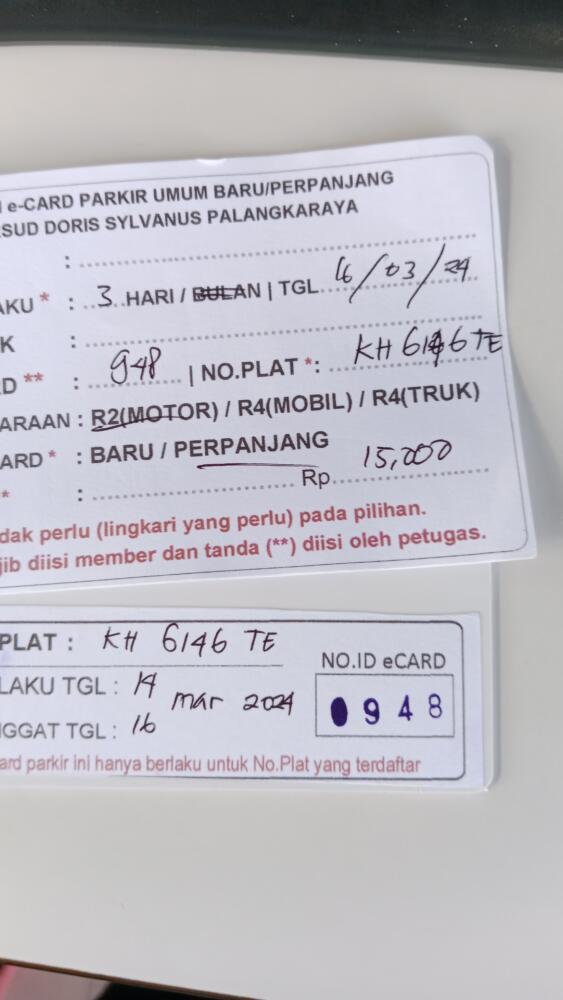 e-CARD PARKIR UMUM BARU/PERPANJANG
SUD DORIS SYLVANUS PALANGKARAYA
:
AKU * : 3 HARI / BULAN | TGL 16/03/24
K :
D ** : 948 | NO.PLAT *: KH 6146 TE
ARAAN : R2(MOTOR) / R4(MOBIL) / R4(TRUK)
ARD * : BARU / PERPANJANG
* : Rp 15,000
dak perlu (lingkari yang perlu) pada pilihan.
jib diisi member dan tanda (**) diisi oleh petugas.
PLAT : KH 6146 TE
NO.ID eCARD
LAKU TGL : 14 mar 2024
0948
GGAT TGL : 16
ard parkir ini hanya berlaku untuk No.Plat yang terdaftar